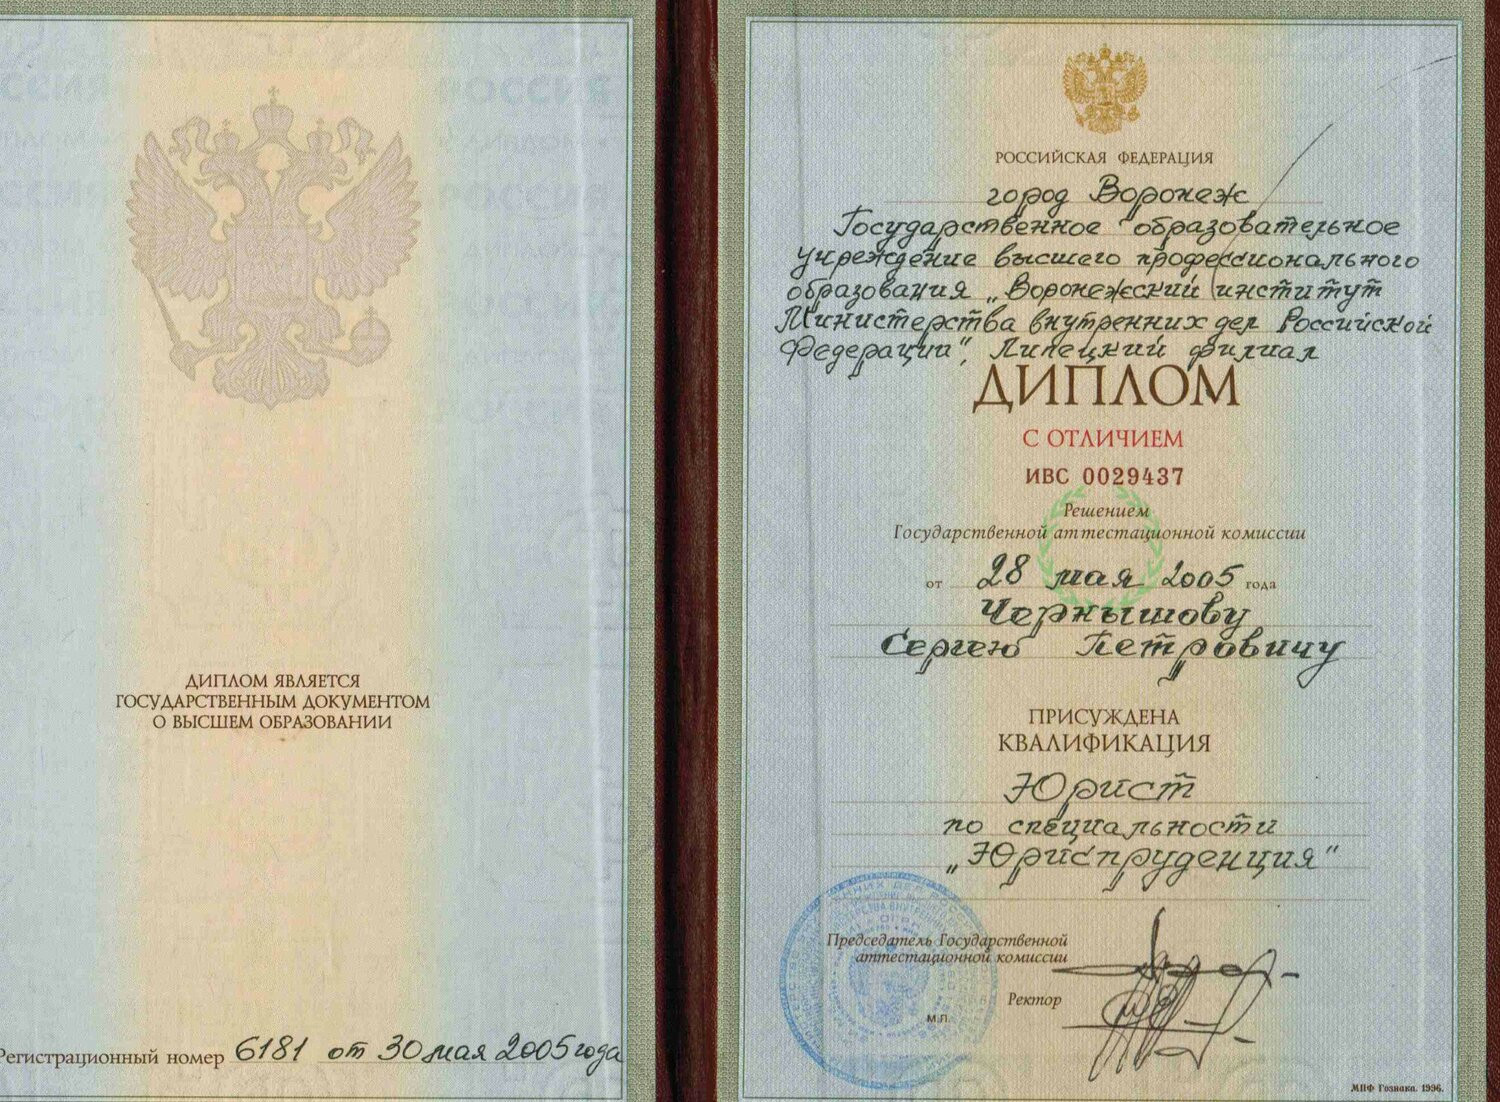 ДИПЛОМ ЯВЛЯЕТСЯ
ГОСУДАРСТВЕННЫМ ДОКУМЕНТОМ
О ВЫСШЕМ ОБРАЗОВАНИИ
Регистрационный номер 6181 от 30 мая 2005 года
РОССИЙСКАЯ ФЕДЕРАЦИЯ
город Воронеж
Государственное образовательное
учреждение высшего профессионального
образования „Воронежский институт
Министерства внутренних дел Российской
Федерации", Липецкий филиал
ДИПЛОМ
С ОТЛИЧИЕМ
ИВС 0029437
Решением
Государственной аттестационной комиссии
от 28 мая 2005 года
Чернышову
Сергею Петровичу
ПРИСУЖДЕНА
КВАЛИФИКАЦИЯ
Юрист
по специальности
„Юриспруденция"
Председатель Государственной
аттестационной комиссии
Ректор
М.П.
МПФ Гознака. 1996.